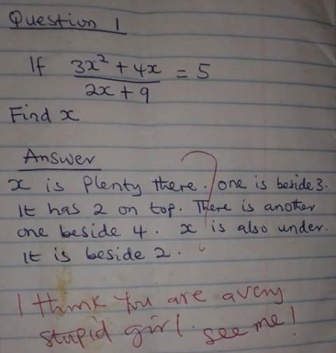 Question 1
If 3x² + 4x = 5
2x + 9
Find x
Answer
x is Plenty there. one is beside 3.
It has 2 on top. There is another
one beside 4. x is also under.
It is beside 2.
I think You are a very
stupid girl. see me!